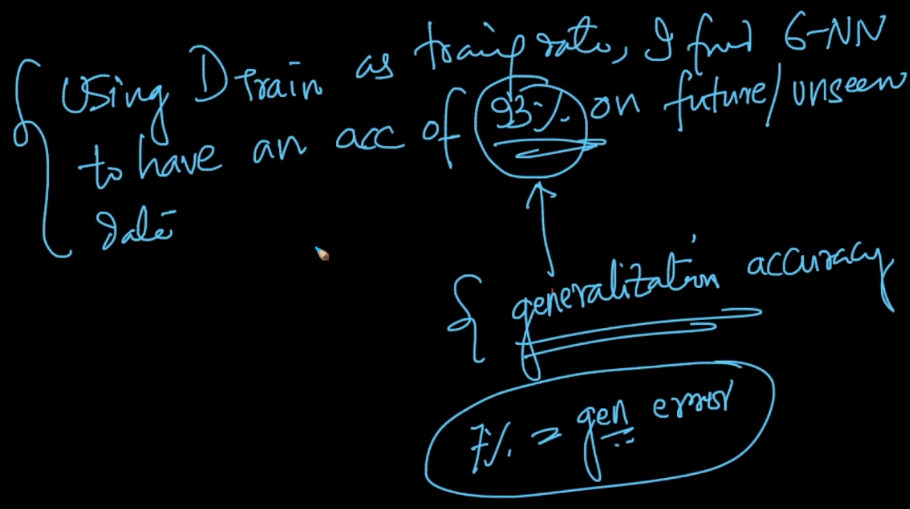 Using D Train as traing rata, I find 6-NN
to have an acc of 93% on future/unseen
data
generalization accuracy
7% = gen error